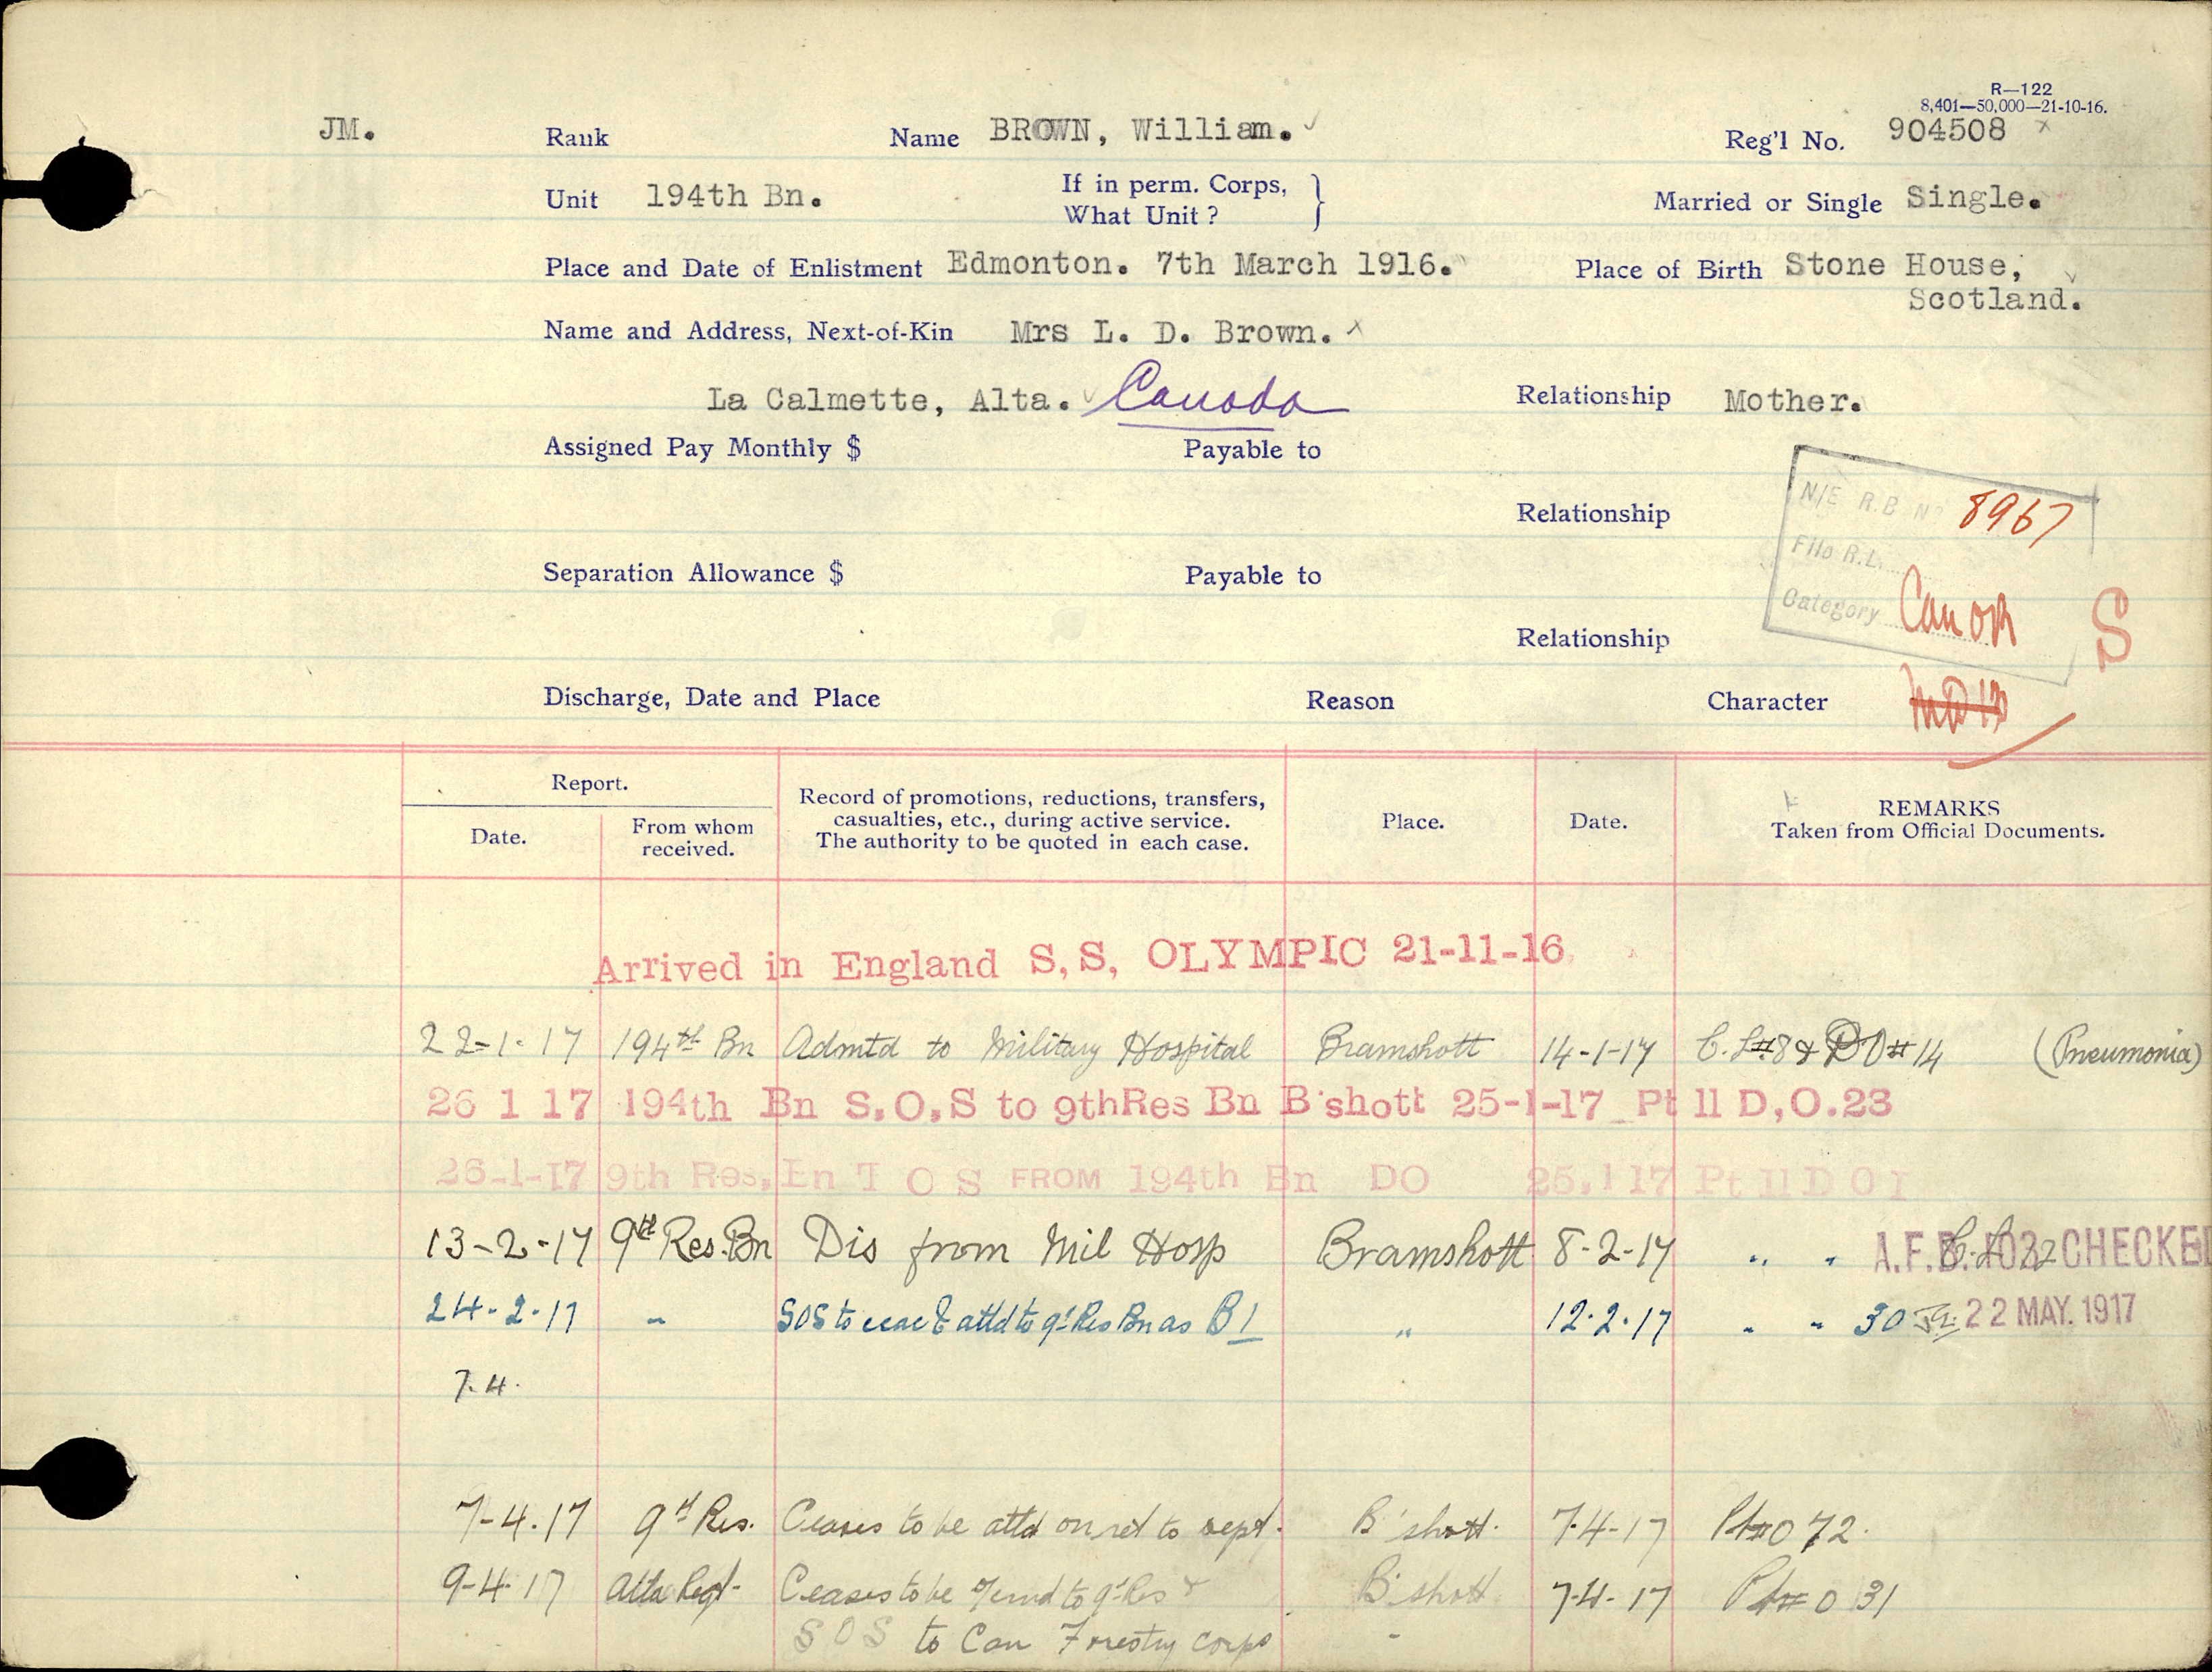 R—122
8,401—50,000—21-10-16.
JM. Rank Name BROWN, William. Reg'l No. 904508
Unit 194th Bn. If in perm. Corps, What Unit ? Married or Single Single.
Place and Date of Enlistment Edmonton. 7th March 1916. Place of Birth Stone House,
Scotland.
Name and Address, Next-of-Kin Mrs L. D. Brown.
La Calmette, Alta. Canada Relationship Mother.
Assigned Pay Monthly $ Payable to
N/E R.B Nº 8967
Relationship
File R.L.
Separation Allowance $ Payable to
Category Can OR S
Relationship
Discharge, Date and Place Reason Character
Report.
Date. From whom received. Record of promotions, reductions, transfers, casualties, etc., during active service. The authority to be quoted in each case. Place. Date. REMARKS Taken from Official Documents.
Arrived in England S,S, OLYMPIC 21-11-16
22-1-17 194th Bn Admtd to Military Hospital Bramshott 14-1-17 C.L#8 & DO#14 (Pneumonia)
26 1 17 194th Bn S.O.S to 9thRes Bn B'shott 25-1-17 Pt 11 D,O.23
26-1-17 9th Res. Bn T O S FROM 194th Bn DO 25.1 17 Pt 11 D O I
13-2-17 9th Res. Bn Dis from Mil Hosp Bramshott 8-2-17 " " C.L 22 A.F.B. 103 CHECKED
24-2-17 " SOS to ccac & attd to 9th Res Bn as B1 " 12.2.17 " " 30 22 MAY. 1917
7.4.
7-4.17 9th Res. Ceases to be attd on ret to dept. B'shott. 7-4-17 Pt II O 72.
9-4-17 Alta Regt. Ceases to be 9th Res & B'shott 7-4-17 Pt II O 31
SOS to Can Forestry Corps "